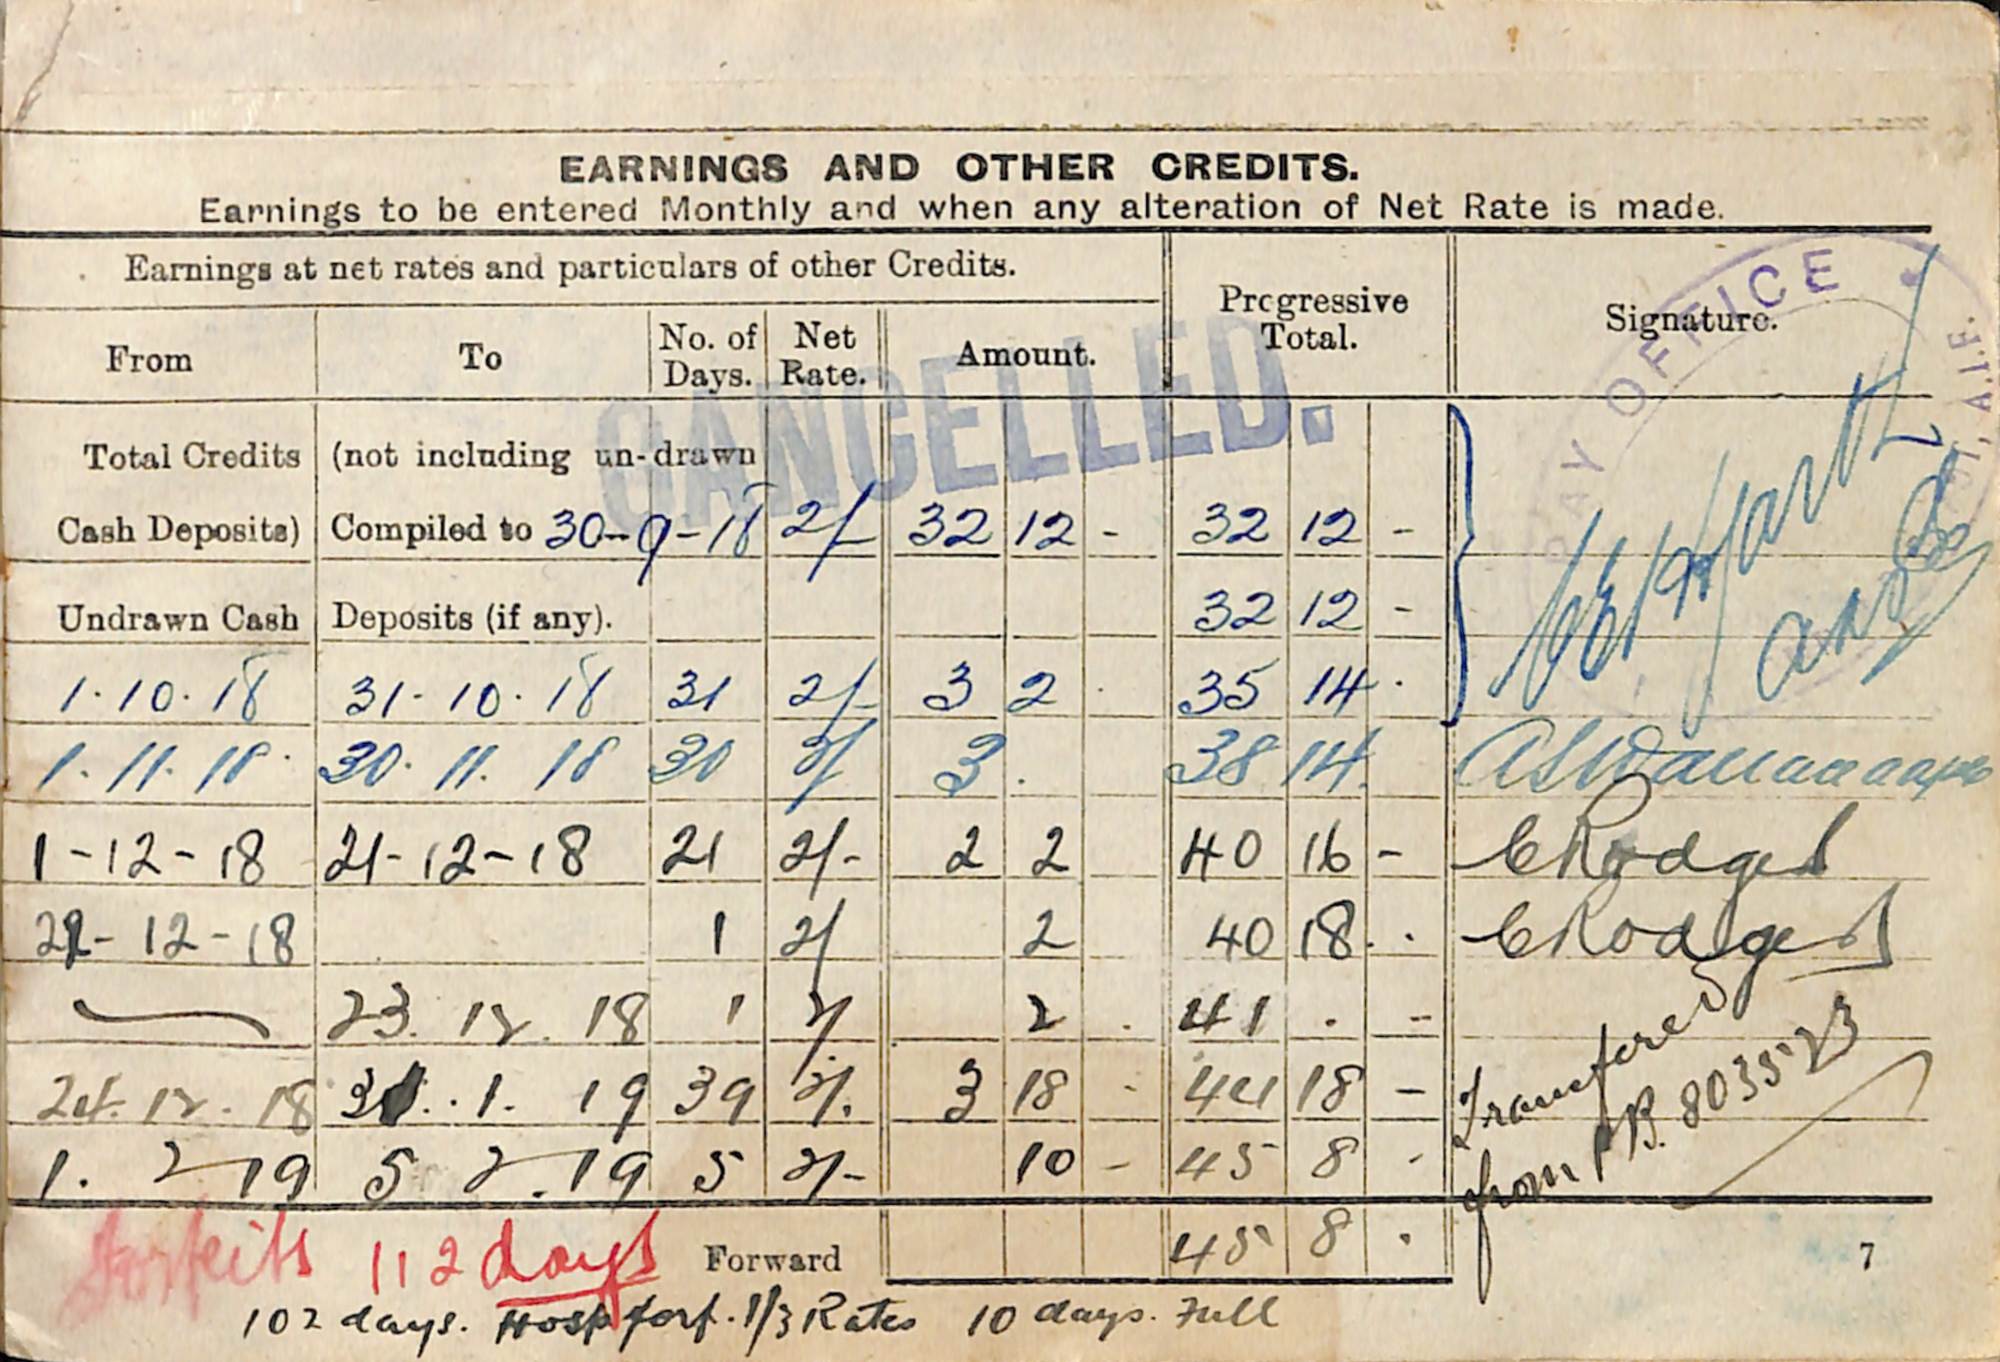 EARNINGS AND OTHER CREDITS.
Earnings to be entered Monthly and when any alteration of Net Rate is made.
Earnings at net rates and particulars of other Credits.
Progressive Total.
Signature.
From To No. of Days. Net Rate. Amount.
PAY OFFICE A.I.F.
CANCELLED.
Total Credits (not including un-drawn
Cash Deposits) Compiled to 30-9-18 2/- 32 12 - 32 12 -
Undrawn Cash Deposits (if any). 32 12 -
1.10.18 31.10.18 31 2/- 3 2 . 35 14 .
1.11.18. 30.11.18 30 2/ 3 . 38 14.
1-12-18 21-12-18 21 2/- 2 2 40 16 - C Rodgers
22-12-18 1 2/ 2 40 18 . . C Rodgers
23.12.18 1 2/ 2 . 41 . -
24.12.18 31.1.19 39 2/. 3 18 - 44 18 -
1.2.19 5.2.19 5 2/- 10 - 45 8 -
Transferred
from P.B. 803523
forfeits 112 days Forward 45 8 .
7
102 days. Hosp forf. 1/3 Rates 10 days. Full